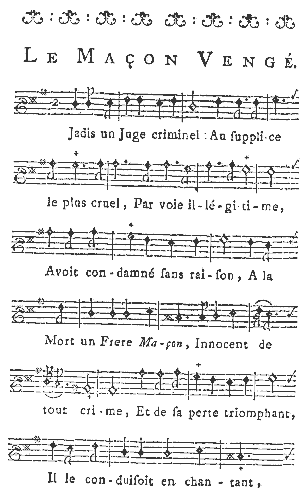 LE MAÇON VENGÉ.
Jadis un Juge criminel : Au supplice
le plus cruel, Par voie il-lé-gi-ti-me,
Avoit con-damné sans rai-son, A la
Mort un Frere Ma-çon, Innocent de
tout cri-me, Et de sa perte triomphant,
Il le con-duisoit en chan-tant,